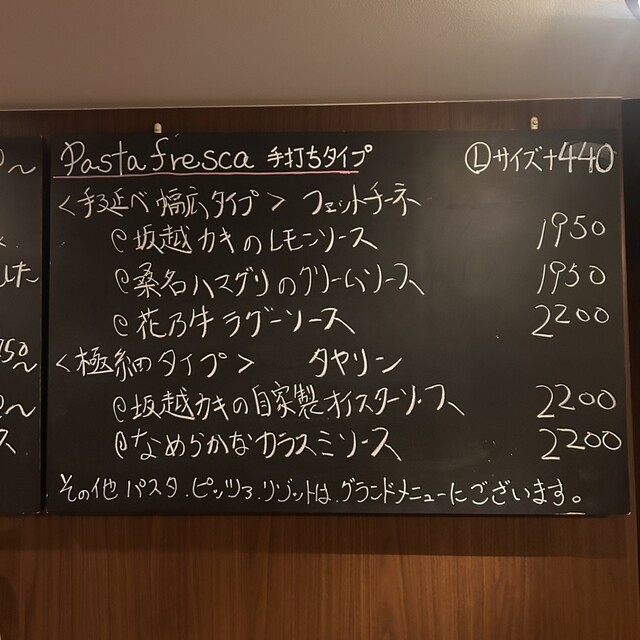 Pasta fresca 手打ちタイプ Ⓛサイズ+440
<手延べ 幅広タイプ> フェットチーネ
@坂越カキのレモンソース 1950
@桑名ハマグリのクリームソース 1950
@花乃牛ラグーソース 2200
<極細タイプ> タヤリン
@坂越カキの自家製オイスターソース 2200
@なめらかなカラスミソース 2200
その他 パスタ.ピッツァ.リゾットは.グランドメニューにございます。